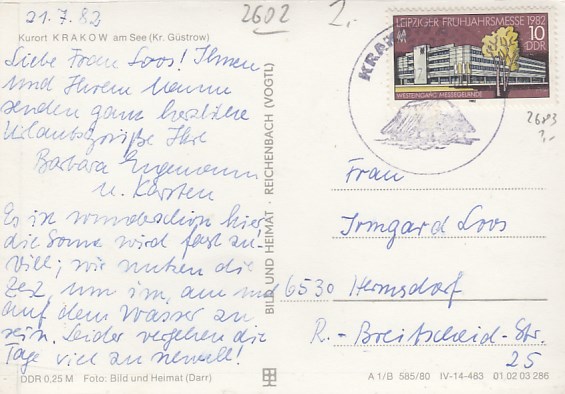 21.7.82
2602
2.-
Kurort KRAKOW am See (Kr. Güstrow)
Liebe Frau Loos! Ihnen
und Ihrem Mann
senden ganz herzliche
Urlaubsgrüße Ihre
Barbara Engemann
u. Karsten
Es ist wunderschön hier,
die Sonne wird fast zu
viel; wir nutzen die
Zeit, um im, am und
auf dem Wasser zu
sein. Leider vergehen die
Tage viel zu schnell!
DDR 0,25 M Foto: Bild und Heimat (Darr)
BILD UND HEIMAT · REICHENBACH (VOGTL)
LEIPZIGER FRÜHJAHRSMESSE 1982
10
DDR
WESTEINGANG MESSEGELÄNDE
KRAKO
2683
2,-
Frau
Irmgard Loos
6530 Hermsdorf
R.-Breitscheid-Str.
25
A 1/B 585/80 IV-14-483 01 02 03 286